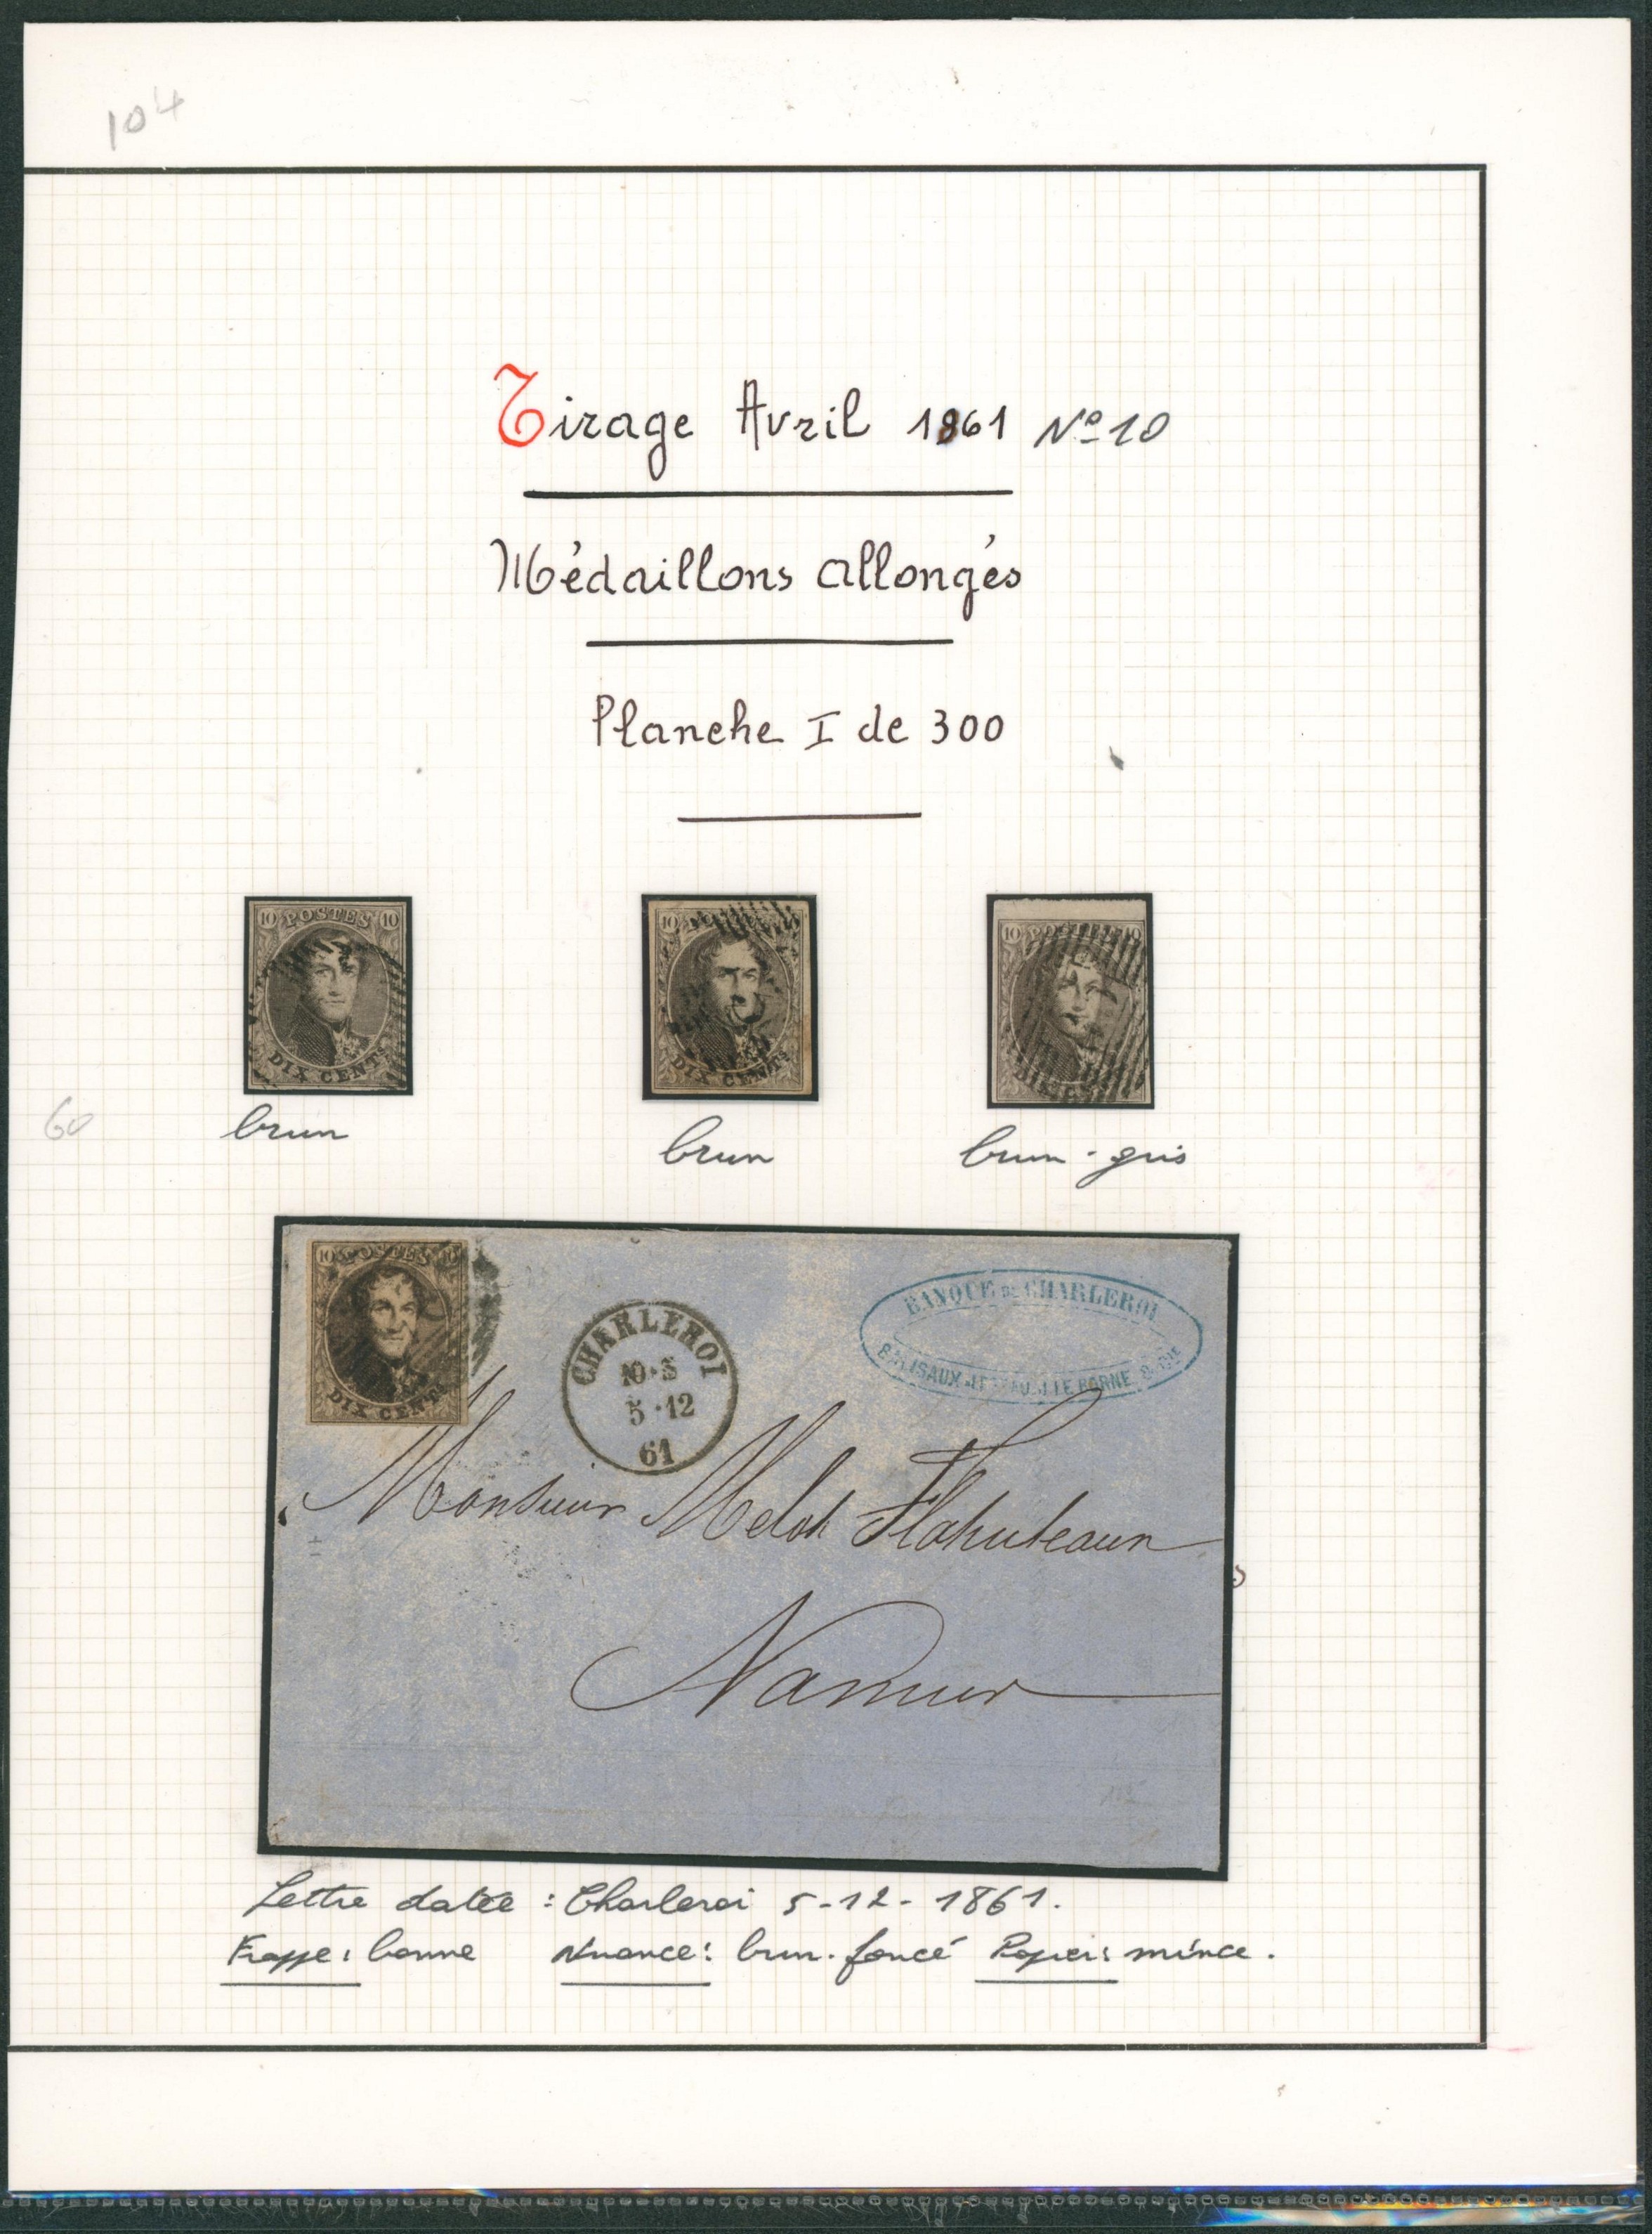 104
Tirage Avril 1861 Nº 10
Médaillons allongés
Planche I de 300
10 POSTES 10
DIX CENTS
10
DIX CENTS
10 10
60
brun
brun
brun-gris
10 POSTES 10
DIX CENTS
BANQUE DE CHARLEROI
LE BORNE & CIE
CHARLEROI
5·12
61
Monsieur Melot Flahuteaux
Namur
Lettre datée : Charleroi 5-12-1861.
Frappe : bonne Nuance : brun-foncé Papier : mince.